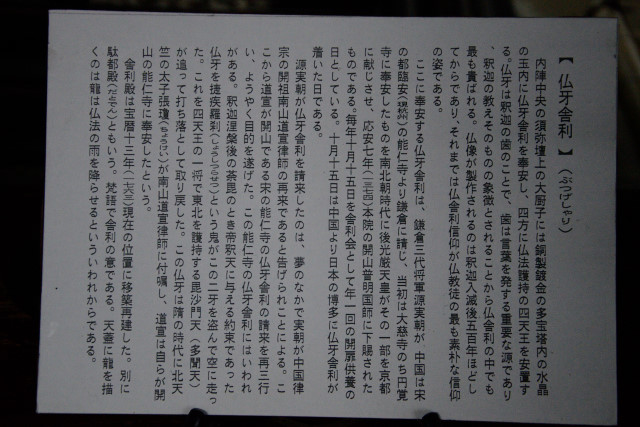 【 仏牙舎利 】(ぶつげしゃり)
内陣中央の須弥壇上の大厨子には銅製鍍金の多宝塔内の水晶
の玉内に仏牙舎利を奉安し、四方に仏法護持の四天王を安置す
る。仏牙は釈迦の歯のことで、歯は言葉を発する重要な源であり
、釈迦の教えそのものの象徴とされることから仏舎利の中でも
最も貴ばれる。仏像が製作されるのは釈迦入滅後五百年ほどし
てからであり、それまでは仏舎利信仰が仏教徒の最も素朴な信仰
の姿である。
ここに奉安する仏牙舎利は、鎌倉三代将軍源実朝が、中国は宋
の都臨安(現杭州)の能仁寺より鎌倉に請じ、当初は大慈寺のち円覚
寺に奉安したものを南北朝時代に後光厳天皇がその一部を京都
に献じさせ、応安七年(一三七四)本院の開山普明国師に下賜された
ものである。毎年十月十五日を舎利会として年一回の開扉供養の
日としている。十月十五日は中国より日本の博多に仏牙舎利が
着いた日である。
源実朝が仏牙舎利を請来したのは、夢のなかで実朝が中国律
宗の開祖南山道宣律師の再来であると告げられことによる。こ
こから道宣が開山である宋の能仁寺の仏牙舎利の請来を再三行
い、ようやく目的を遂げた。この能仁寺の仏牙舎利にはいわれ
がある。釈迦涅槃後の荼毘のとき帝釈天に与える約束であった
仏牙を捷疾羅刹(しょうしつらせつ)という鬼がこの二牙を盗んで空に走っ
た。これを四天王の一将で東北を護持する毘沙門天(多聞天)
が追って打ち落として取り戻した。この仏牙は隋の時代に北天
竺の太子張瓊(ちょうけい)が南山道宣律師に付嘱し、道宣は自らが開
山の能仁寺に奉安したという。
舎利殿は宝暦十三年(一七六三)現在の位置に移築再建した。別に
駄都殿(だとでん)ともいう。梵語で舎利の意である。天蓋に龍を描
くのは龍は仏法の雨を降らせるといういわれからである。